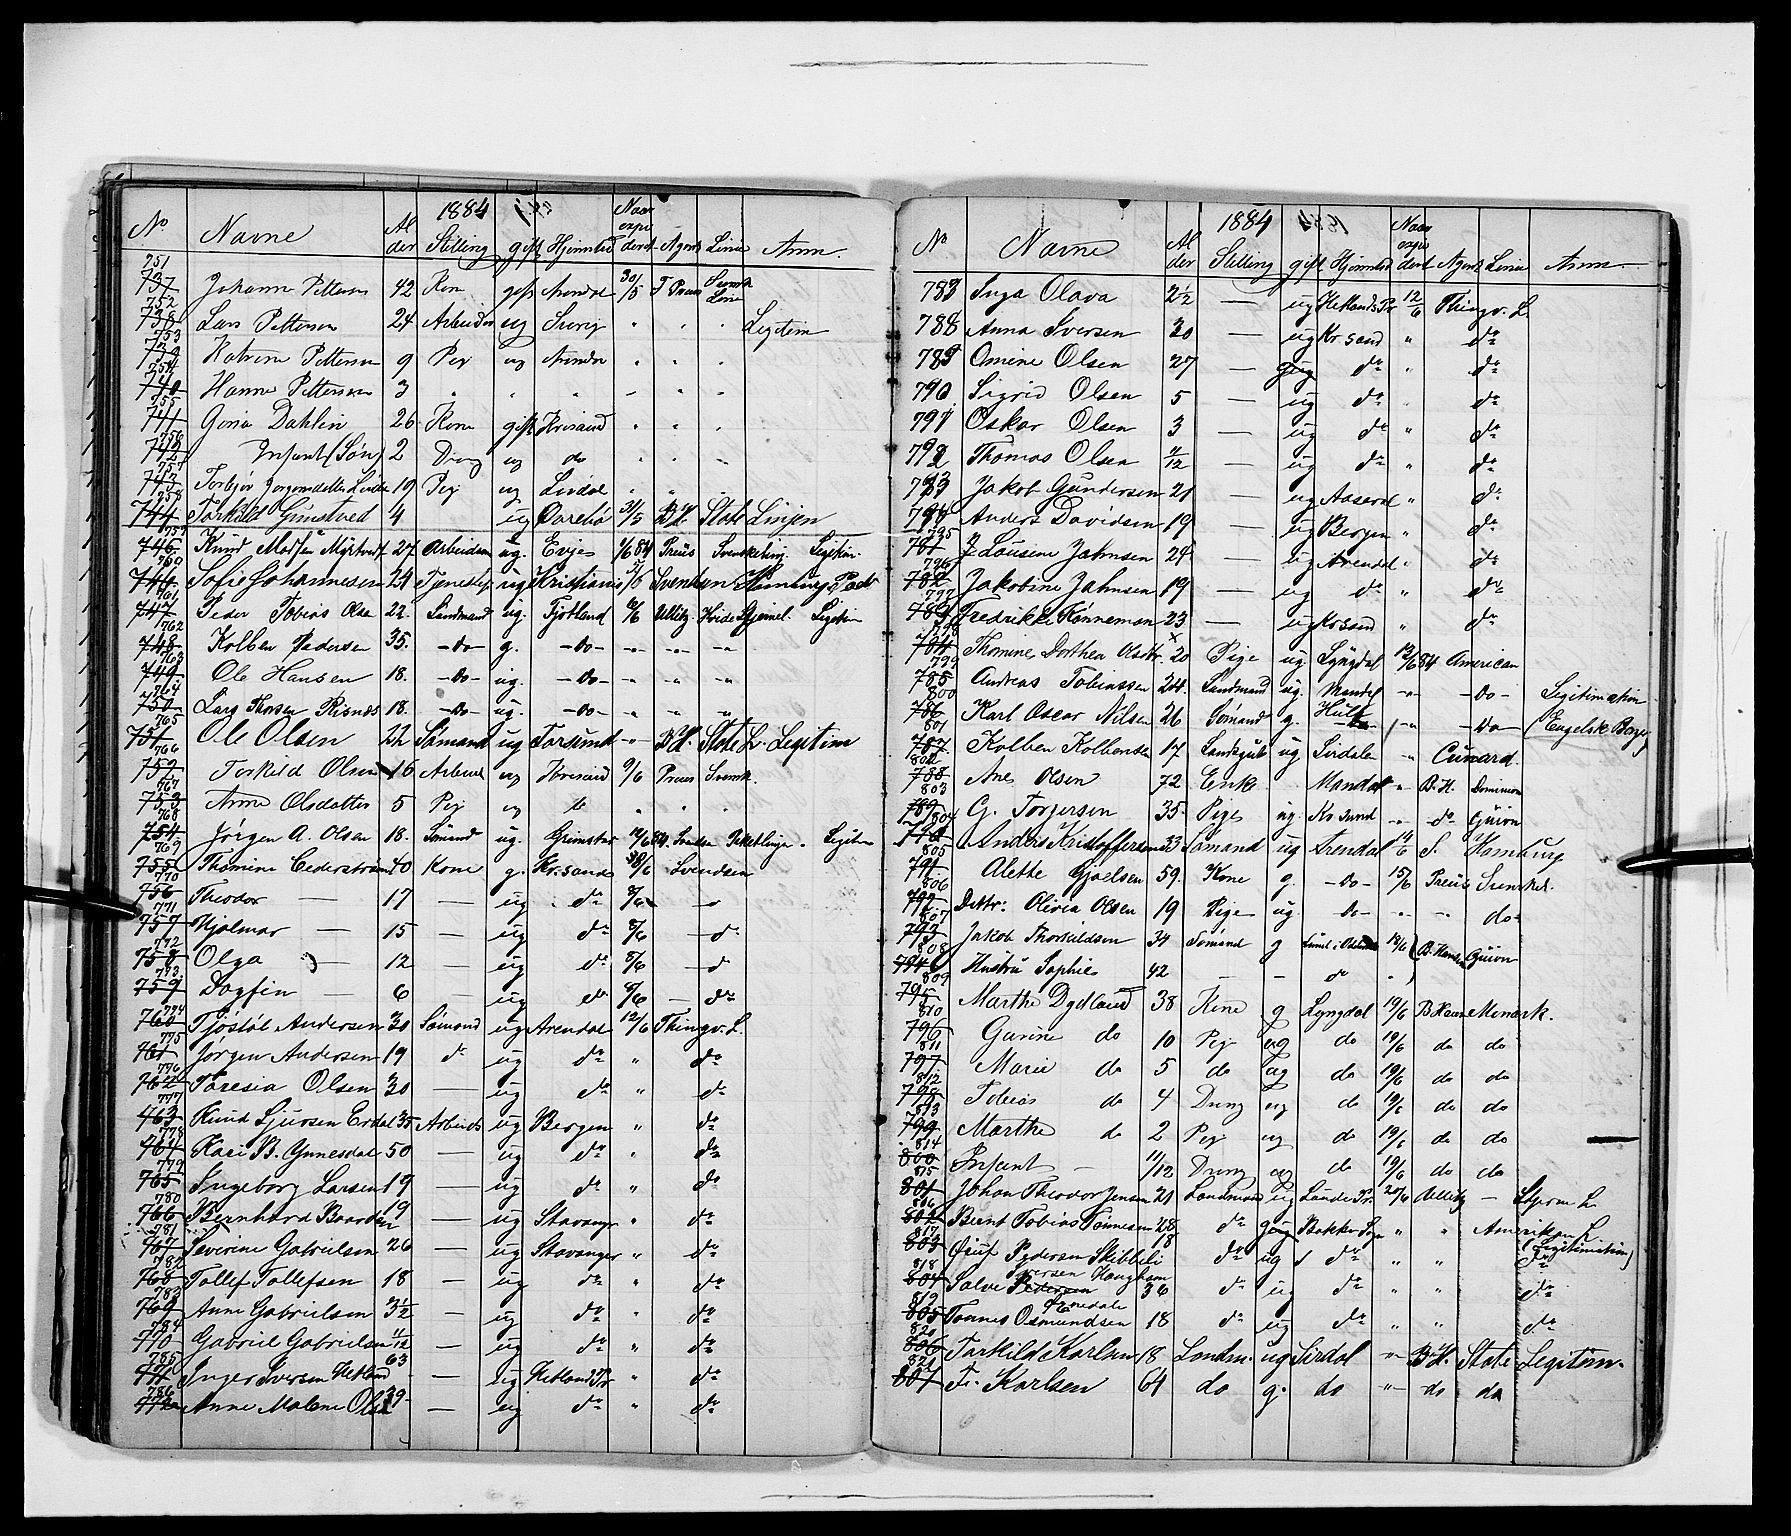 1884
No Navne Alder Stilling gift Hjemsted Naar exped Agent Linie Anm.
751 737 Johanne Pettersen 42 Kone gift Arendal 30/5 T Preus Svensk Linie
752 738 Lars Pettersen 24 Arbeider ug Sverig " " " Legitim
753 739 Katrine Pettersen 9 Pig ug Arendal " " "
754 740 Hanna Pettersen 3 " " " " " "
755 741 Goria Dahlin 26 Kone gift Krisand " " "
756 742 Infant (Søn) 2 Dreng ug do " " "
757 743 Torbjør Jorgensdatter Lindal 19 Pig ug Lindal " " "
758 744 Torkild Gimstved 4 ug Øvrebø 31/5 B.H. State Linjen
759 745 Knud Madsen Myrtvedt 27 Arbeidsm ug. Evje 1/6 84 Preus Svenskeling. Legitim.
760 746 Sofie Johannesen 24 Tjenestep ug Kristiania 5/6 Svendsen Hamburg Pack
761 747 Peder Tobias Olsen 22. Landmand ug. Fjotland 6/6 Ullitz Hvide Stjernel. Legitim
762 748 Kolben Pedersen 35. -do- g. -do- -"- -"- -"-
763 749 Ole Hansen 18. -do- ug. -do- -"- -"- -"-
764 750 Lars Thorsen Risnes 18. -do- ug. -do- -"- -"- -"-
765 751 Ole Olsen 22 Sømand ug Farsund -"- B.H. State L. Legitim
766 752 Torkild Olsen 16 Arbeid ug Krisand 9/6 Preus Svensk.
767 753 Anne Olsdatter 5 Pig ug do " " "
768 754 Jørgen A. Olsen 18. Sømand ug. Grimstad 10/6 84. Svendsen Paketlinje. Legitim
769 755 Thomine Cederstrøm 40 Kone g. Kr.sand 8/6 Svendsen
770 756 Theodor — 17 — ug do 8/6 — do
771 757 Hjalmar — 15 — ug do 8/6 — do
772 758 Olga 12 — ug do 8/6 — do
773 759 Dagfin — 6 — ug do 8/6 — do
774 760 Tjøstøl Andersen 30 Sømand ug Arendal 12/6 Thingv. L.
775 761 Jørgen Andersen 19 do ug do " do
776 762 Taresia Olsen 30 — ug do " do
777 763 Knud Sjursen Erdal 35 Arbeids ug Bergen " do
778 764 Kari B. Gunnesdal 50 — ug do " do
779 765 Ingeborg Larsen 19 — ug do " do
780 766 Bernhard Baardsen 19 — ug Stavanger " do
781 767 Severine Gabrielsen 26 — ug Stavanger " do
782 768 Tollef Tollefsen 18 — ug do " do
783 769 Anne Gabrielsen 3½ — ug do " do
784 770 Gabriel Gabrielsen 11/12 — ug do " do
785 771 Inger Iversen Hetland 63 - ug Hetland Pr " do
786 772 Anne Malene Olsen 39 — ug do " do
1884
No Navne Alder Stilling gift Hjemsted Naar exped Agent Linie Anm
787 Inga Olava 2½ — ug Hetlands Pr 12/6 Thingv. L.
788 Anna Iversen 30 — ug Kr.sand " do
789 Omine Olsen 27 — gug do " do
790 Sigrid Olsen 5 — ug do " do
791 Oskar Olsen 3 — ug do " do
792 Thomas Olsen 9/12 — ug do " do
793 Jakob Gundersen 21 — ug Aaseral " do
794 Anders Davidsen 19 — ug Bergen " do
795 781 J. Lousine Jahnsen 24 — ug Arendal " do
796 782 Jakobine Jahnsen 19 — ug do " do
797 783 Fredrikke Kønneman 23 — ug Kr.sand " do
798 784 Thomine Dorthea Olsdtr. 20 Pige ug Lyngdal 12/6 84 American
799 785 Andreas Tobiassen 24. Landmand ug. Mandal -"- -do- Legitimation
800 786 Karl Oscar Nilsen 26 Sømand g. Hull -"- -do- (Engelsk Borger)
801 787 Kolben Kolbensen 17 Landsgut ug Sirdalen -"- Cunard.
802 788 Ane Olsen 72 Enke Mandal " B.H. Dominion
803 789 G. Torjersen 35. Pige ug. Kr Sand " do Guion
804 790 Anders Kristoffersen 33 Sømand ug Arendal 14/6 S. Hamburg
805 791 Alette Gjaelsen 59. Kone g. -do- 15/6 Preus Svenskel.
806 792 Dattr: Olivia Olsen 19 Pige ug. -do- -"- -"- do
807 793 Jakob Thorkildsen 34 Sømand g 18/6 B. Hansen Guion
808 794 Hustru Sophie 42 — - do "
809 795 Marthe Dydland 38 Kone g Lyngdal 19/6 B Hansen Monark.
810 796 Gurine do 10 Pig ug do 19/6 do do
811 797 Marie do 5 do ug do 19/6 do do
812 798 Tobias do 4 Dreng ug do 19/6 do do
813 799 Marthe do 2 Pig ug do 19/6 do do
814 800 Infant — 11/12 Dreng ug do 19/6 do do
815 801 Johan Theodor Jensen 21 Landmand ug Lunde Pr. 20/6 Ullitz — Stjerne L
816 802 Bernt Tobias Tønnesen 28 do gug Bakke Sogn " " Amerikan L. (Legitimation)
817 803 Ojuf Pedersen Skibbeli 18 do ug do " " do
818 804 Salve Pedersen Iversen Haugham 36 do ug do " " do
819 805 Tønnes Osmundsen 18 do ug do " " do
820 806 Torkild Karlsen 18 Landm. ug Sirdal -"- B.H. State Legitim.
821 807 F. Karlsen 61 do g. do -"- do do